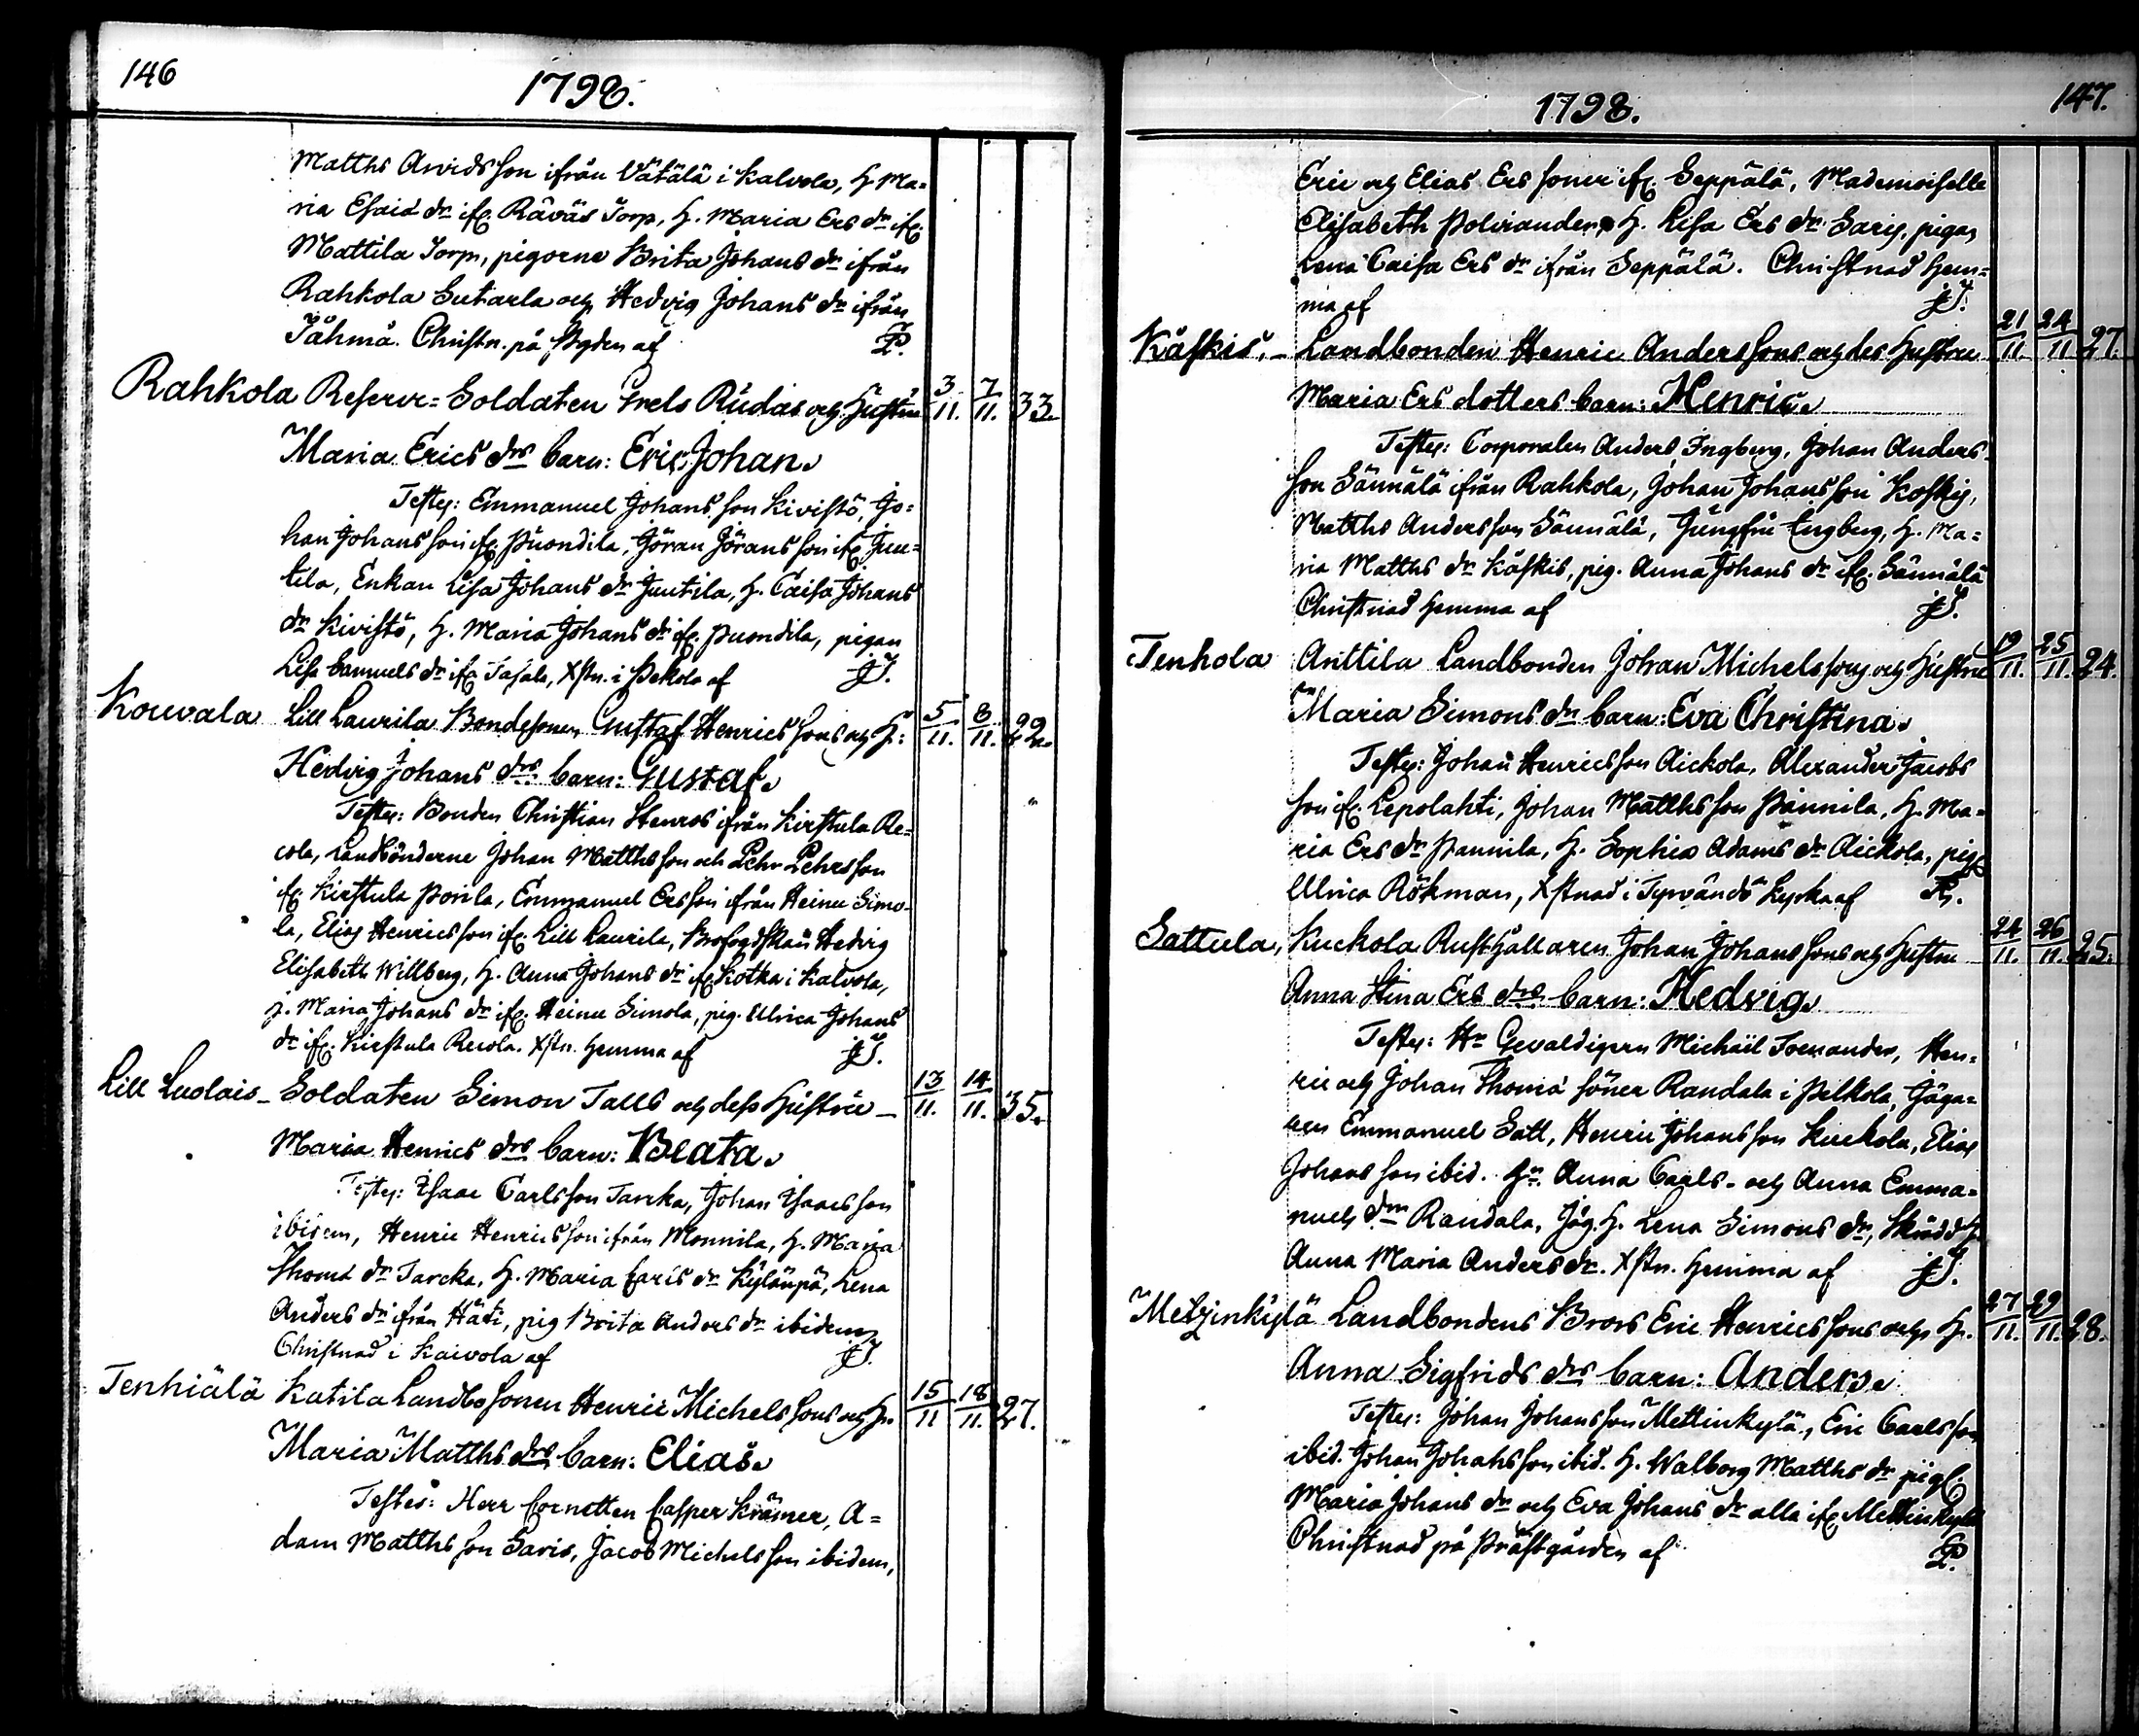 146
1798.
Matths Arvidsson ifrån Vätälä i Kalvola, H. Ma=
ria Esaiæ dr ifr. Räväs Torp, H. Maria Ers dr ifr.
Mattila Torp, pigorne Brita Johans dr ifrån
Rahkola Sutarla och Hedvig Johans dr ifrån
Jåhmå. Christn. på Bygden af P.
Rahkola Reserve=Soldaten Rudas och Hustru 3/11. 7/11. 33.
Maria Erics drs barn: Eric Johan.
Testes: Emmanuel Johansson Kivistö, Jo=
han Johansson ifr. Puondila, Jöran Jöransson ifr. Juu=
tila, Enkan Lisa Johans dr Juutila, H. Caisa Johans
dr Kivistö, H. Maria Johans dr ifr. Puondila, pigan
Lisa Samuels dr ifr. Tasala, Xstn. i Pekola af JT.
Kouvala Lill Laurila Bondesonen Gustaf Henricssons och H: 5/11. 8/11. 22.
Hedvig Johans drs barn: Gustaf.
Testes: Bonden Christian Stenros ifrån Kirstula Re=
cola, Landbönderne Johan Matthsson och Pehr Pehrsson
ifr. Kirstula Porila, Emmanuel Ersson ifrån Heinu Simo-
la, Elias Henricsson ifr. Lill Laurila, Hedvig
Elisabeth Willberg, H. Anna Johans dr ifr. Kotka i Kalvola,
p. Maria Johans dr ifr. Heinu Simola, pig. Ulrica Johans
dr ifr. Kirstula Recola. Xstn. hemma af JT.
Lill Luolais - Soldaten Simon Talls och dess Hustru - 13/11. 14/11. 35.
Maria Henrics drs barn: Beata.
Testes: Isaac Carlsson Tarcka, Johan Isaacsson
ibidem, Henric Henricsson ifrån Monnila, H. Maria
Thomæ dr Tarcka, H. Maria Caris dr Kylänpä, Lena
Anders dr ifrån Häti, pig Brita Anders dr ibidem
Christnad i Kaivola af JT.
Tenhiälä Katila Landbosonen Henric Michelssons och H. 15/11 18/11. 27.
Maria Matths drs barn: Elias.
Testes: Herr Cornetten Casper Krämer, A=
dam Matthsson Saris, Jacob Michelsson ibidem,
1798.
147.
Eric och Elias Erssoner ifr. Seppälä, Mademoiselle
Elisabeth Polviander, H. Lisa Ers dr Saris, pigan
Lena Caisa Ers dr ifrån Seppälä. Christnad hem=
ma af JT.
Käskis. - Landbonden Henric Anderssons och des Hustru 21/11. 24/11 27.
Maria Ers dotters barn: Henric.
Testes: Corporalen Anders Ingberg, Johan Anders-
son Sännälä ifrån Rahkola, Johan Johansson Koskis,
Matths Andersson Sännälä, Jungfru Engberg, H. Ma=
ria Matths dr Käskis, pig. Anna Johans dr ifr. Sännälä
Christnad hemma af JT.
Tenhola Anttila Landbonden Johan Michelssons och Hustru 19/11. 25/11. 24.
Maria Simons dr barn: Eva Christina.
Testes: Johan Henricsson Aickola, Alexander Jacobs
son ifr. Lepolahti, Johan Matthsson Pännila, H. Ma=
ria Ers dr Pannila, H. Sophia Adams dr Aickola, pig.
Ulrica Rökman, Xstnad i Tyrvändö Kyrka af
Sattula, Kuckola Rusthållaren Johan Johanssons och Hustru 24/11. 26/11. 25.
Anna Stina Ers drs barn: Hedvig.
Testes: Hr Gevaldigern Michaël Toenander, Hen=
ric och Johan Thomæ söner Randala i Pelkola, Jäga=
ren Emmanuel Satt, Henric Johansson Kuckola, Elias
Johansson ibid. Hr. Anna Carls- och Anna Emma=
nuels drr Randala, Jäg. H. Lena Simons dr, Skrädd. H.
Anna Maria Anders dr. Xstn. hemma af JT.
Metzinkylä Landbondens Brors Eric Henricssons och H. 27/11. 29/11. 28.
Anna Sigfrids drs barn: Anders.
Testes: Johan Johansson Mettinkylä, Eric Carlsson
ibid. Johan Johansson ibid. H. Walborg Matths dr pig.
Maria Johans dr och Eva Johans dr alla ifr. Mettinkylä
Christnad på Prästgården af P.